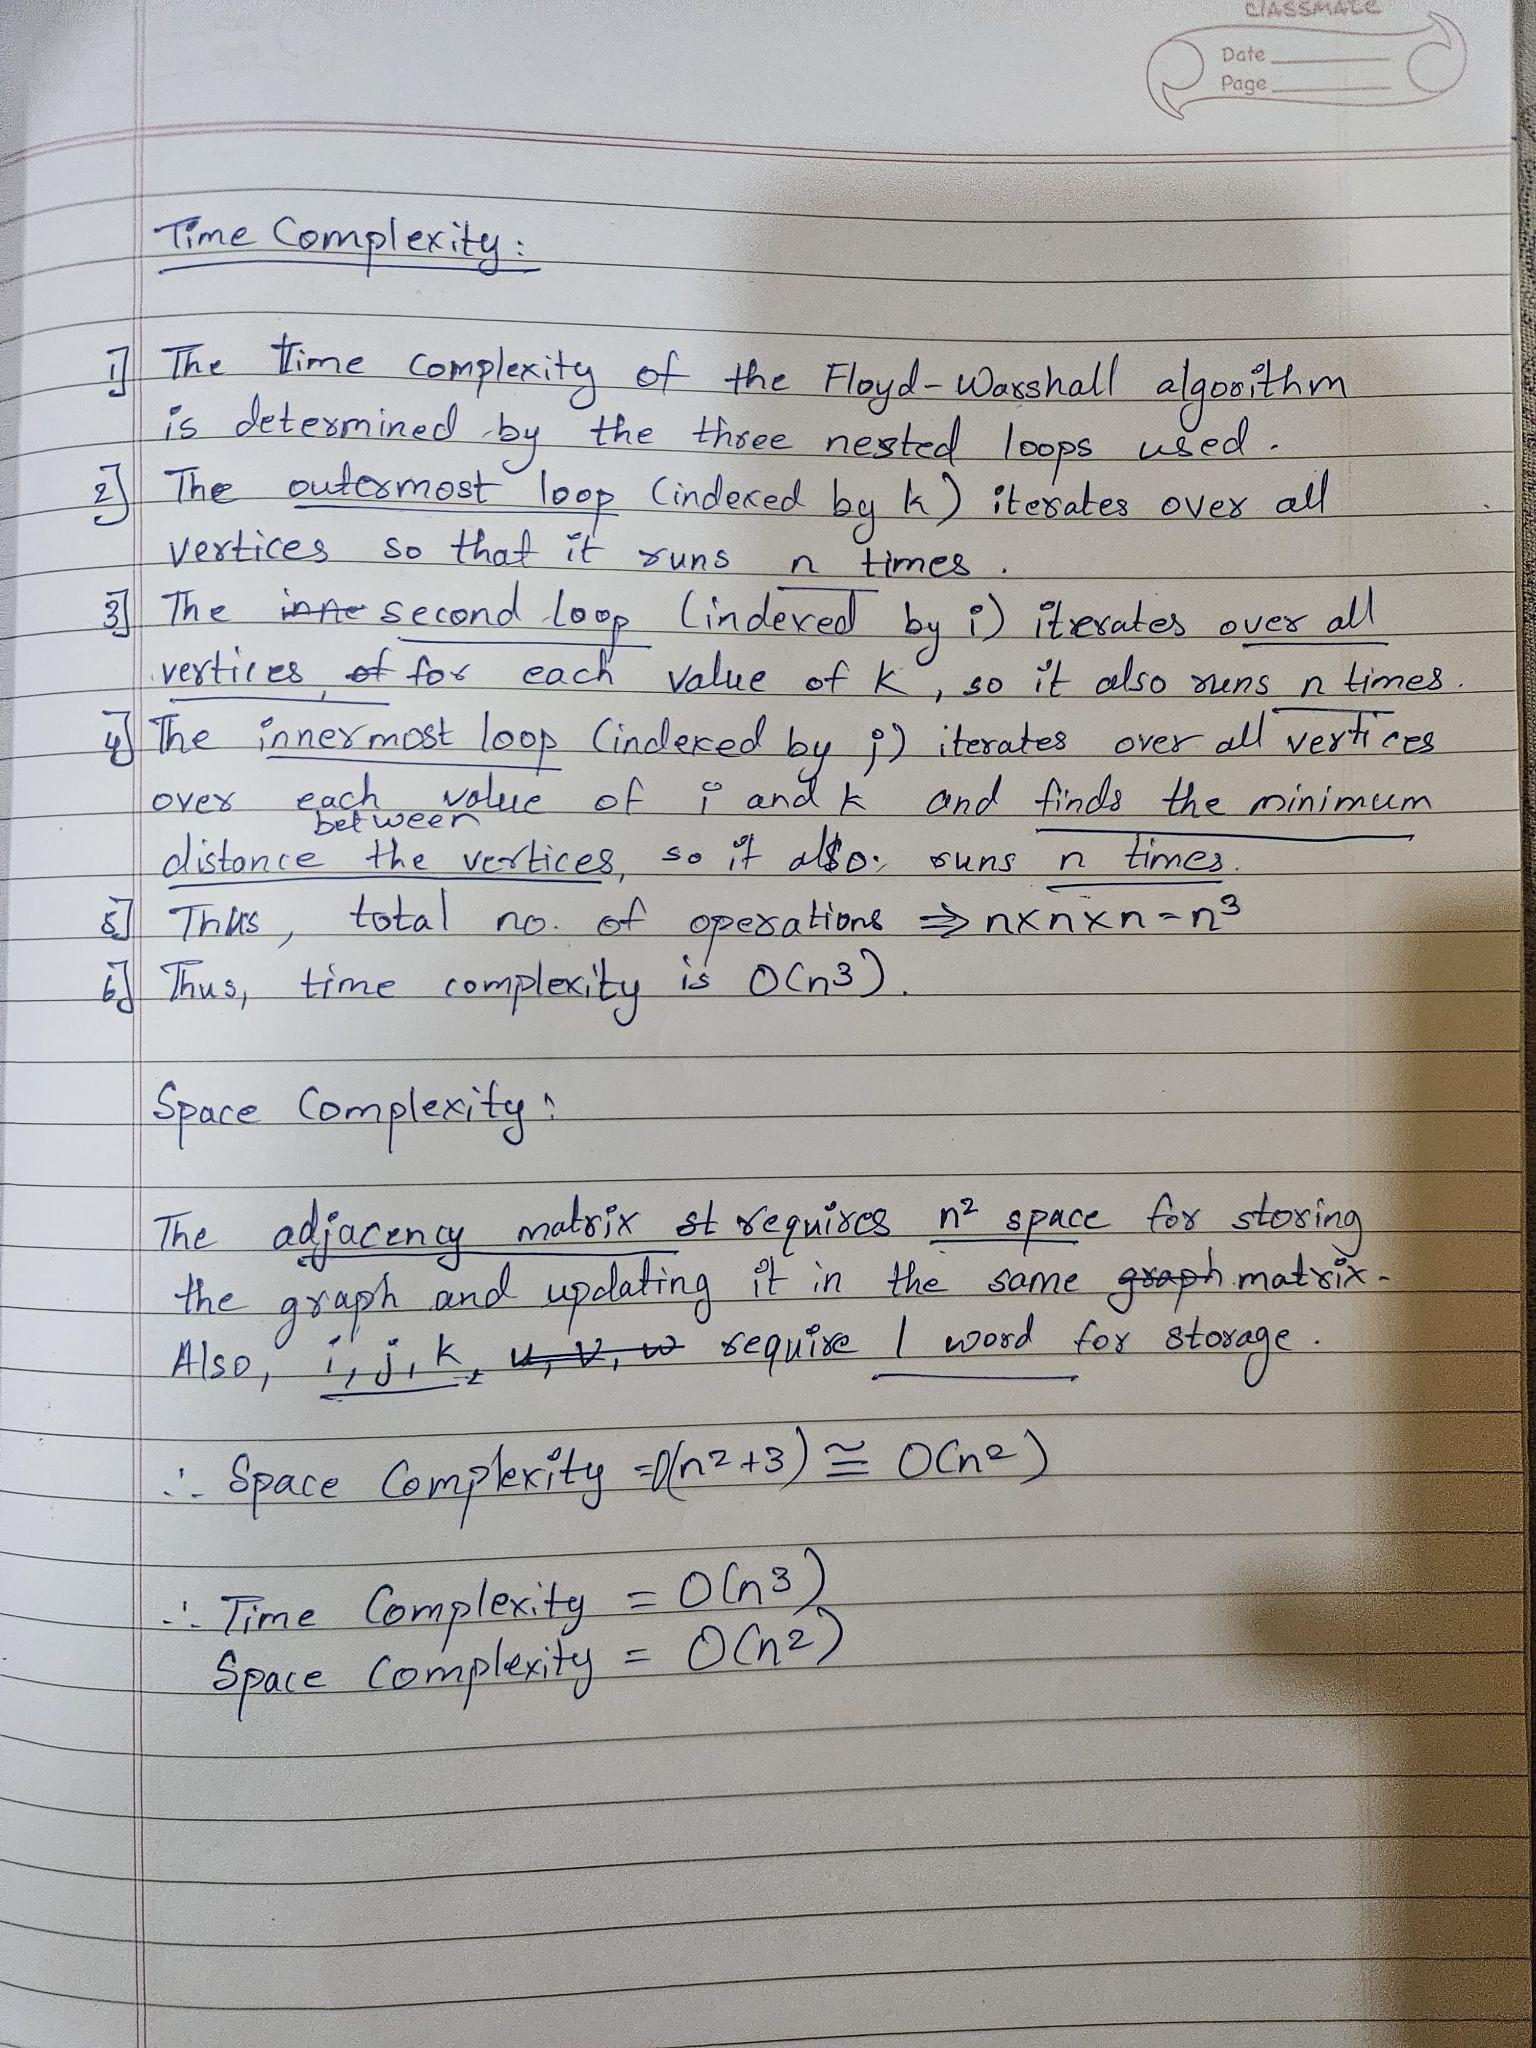 classmate
Date
Page
Time Complexity:
1] The time complexity of the Floyd-Warshall algorithm
is determined by the three nested loops used.
2] The outermost loop (indexed by k) iterates over all
vertices so that it runs n times.
3] The inne second loop (indexed by i) iterates over all
vertices, of for each value of k, so it also runs n times.
4] The innermost loop (indexed by j) iterates over all vertices
over each value of i and k and finds the minimum
between
distance the vertices, so it also runs n times.
5] Thus, total no. of operations ⇒ n×n×n = n³
6] Thus, time complexity is O(n³).
Space Complexity:
The adjacency matrix st requires n² space for storing
the graph and updating it in the same graph matrix.
Also, i, j, k, u, v, w require 1 word for storage.
∴ Space Complexity = O(n²+3) ≅ O(n²)
∴ Time Complexity = O(n³)
Space Complexity = O(n²)